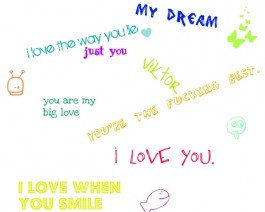 MY DREAM
i love the way you lie
just you
Viktor
you are my
big love
YOU'RE THE FUCKING BEST.
i LOVE YOU.
I LOVE WHEN
YOU SMILE